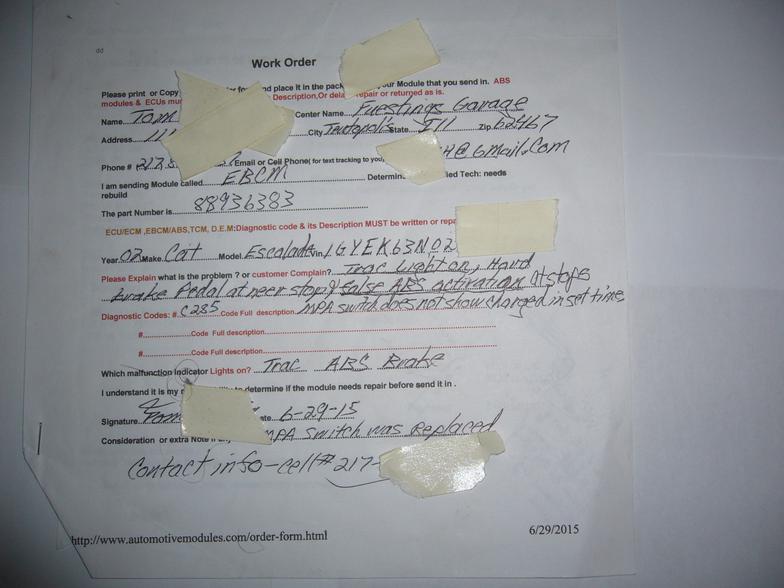 dd
Work Order
Please print or Copy and place it in the pack your Module that you send in. ABS
modules & ECUs mus Description,Or dela repair or returned as is.
Name Tom Center Name Fuestings Garage
Address 111 City Teutopolis State Ill Zip 62467
Phone # 217 8 Email or Cell Phone( for text tracking to you) H@Gmail.Com
I am sending Module called EBCM Determin ied Tech: needs
rebuild
The part Number is 88936383
ECU/ECM ,EBCM/ABS,TCM, D.E.M:Diagnostic code & its Description MUST be written or repa
Year 02 Make Cat Model Escalade Vin 1GYEK63N02
Please Explain what is the problem ? or customer Complain? Trac Light on, Hard
brake Pedal at neer stop & false ABS activation At stops
Diagnostic Codes: #. C285 Code Full description MPA switch does not show changed in set time
# Code Full description
# Code Full description
Which malfunction indicator Lights on? Trac ABS Brake
I understand it is my to determine if the module needs repair before send it in .
Signature Tom ate 6-29-15
Consideration or extra Note if any MPA Switch was Replaced
Contact info-cell# 217-
http://www.automotivemodules.com/order-form.html 6/29/2015